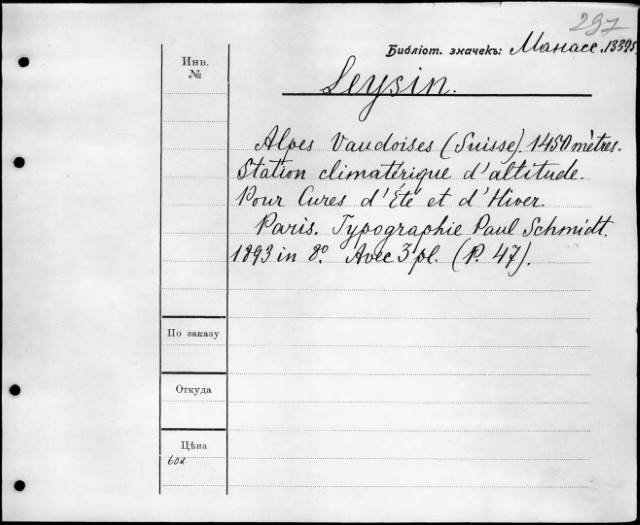 297
Библiот. значекъ: Манасе. 13325
Инв.
№
Leysin.
Alpes Vaudoises (Suisse) 1450 mètres.
Station climatérique d'altitude.
Pour Cures d'Été et d'Hiver.
Paris. Typographie Paul Schmidt.
1893 in 8º. Avec 3 pl. (P. 47).
По заказу
Откуда
Цѣна